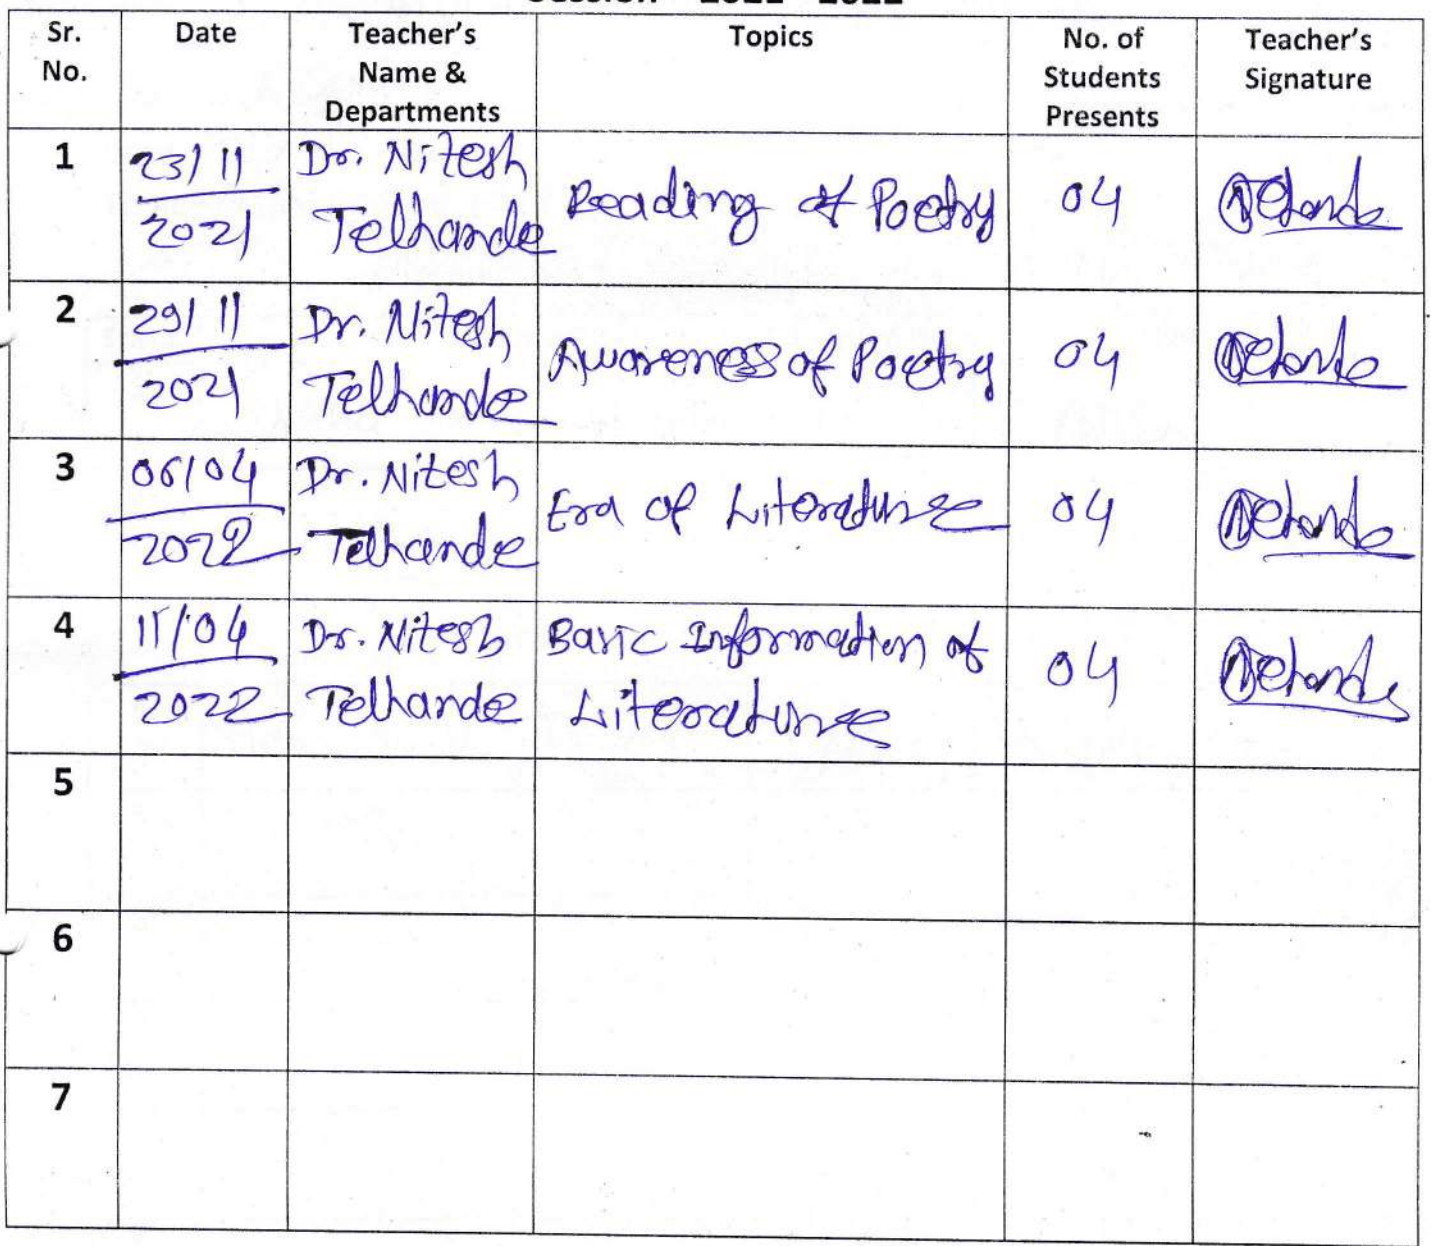 Session - 2021 - 2022
Sr. No. Date Teacher's Name & Departments Topics No. of Students Presents Teacher's Signature
1 23/11 2021 Dr. Nitesh Telhande Reading of Poetry 04 Telhande
2 29/11 2021 Dr. Nitesh Telhande Awareness of Poetry 04 Telhande
3 06/04 2022 Dr. Nitesh Telhande Era of Literature 04 Telhande
4 11/04 2022 Dr. Nitesh Telhande Basic Information of Literature 04 Telhande
5
6
7